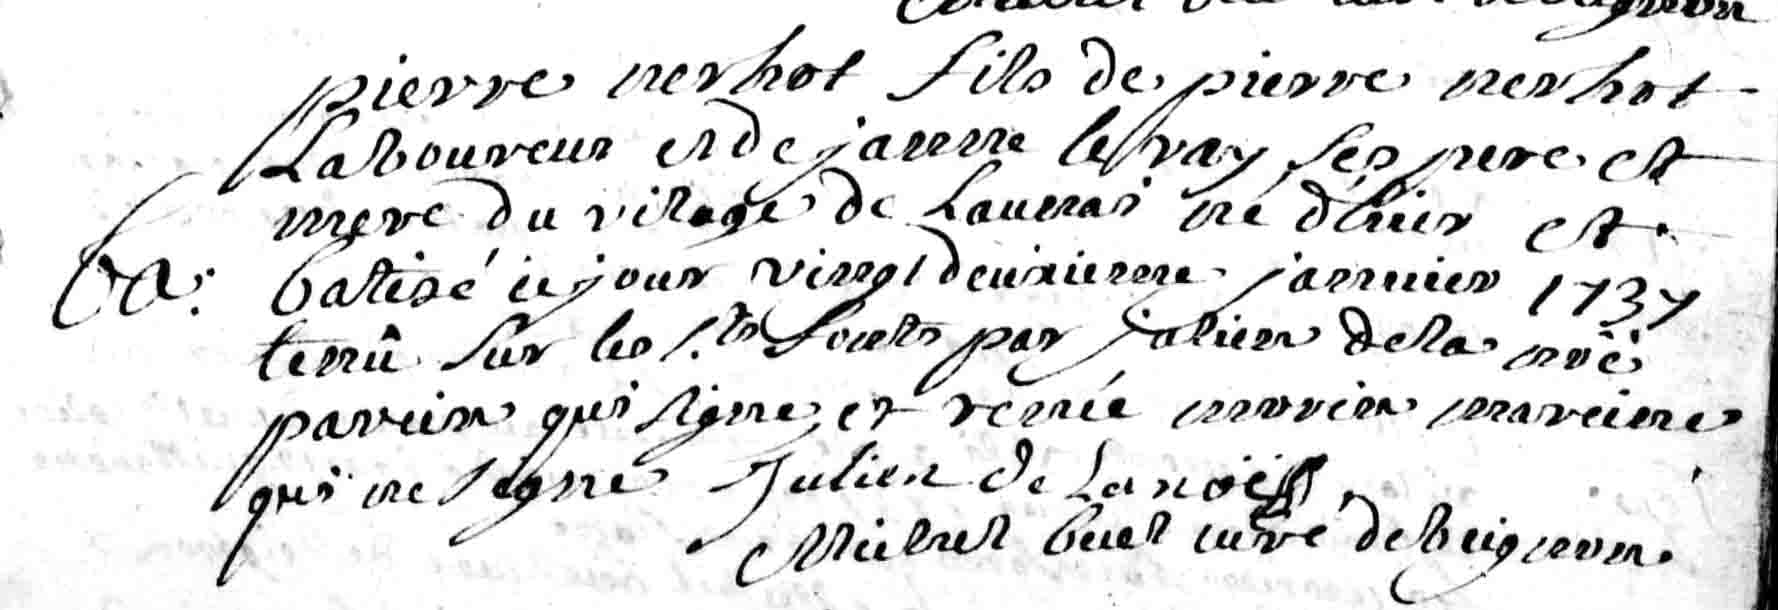 pierre nerhot fils de pierre nerhot
Laboureur et de janne le vay ses pere et
mere du vilage de Launai né d'hier et
Ba: batisé ce jour vingt deuxieme januier 1737
tenû sur les s.ts fonts par julien de la noê
parein qui signe et renée morin mareine
qui ne signe Julien de Lanoë
Michel buel curé de